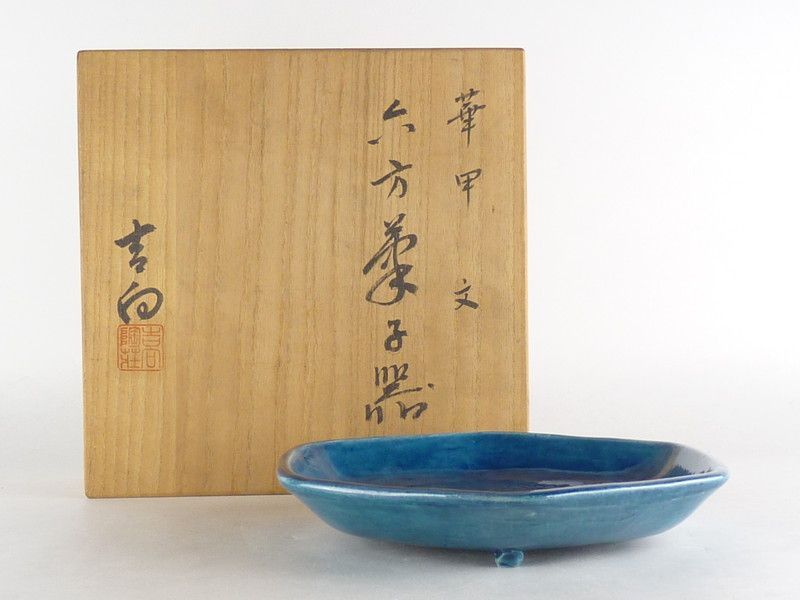 華甲 文
六方菓子器
吉向
吉向陶荘